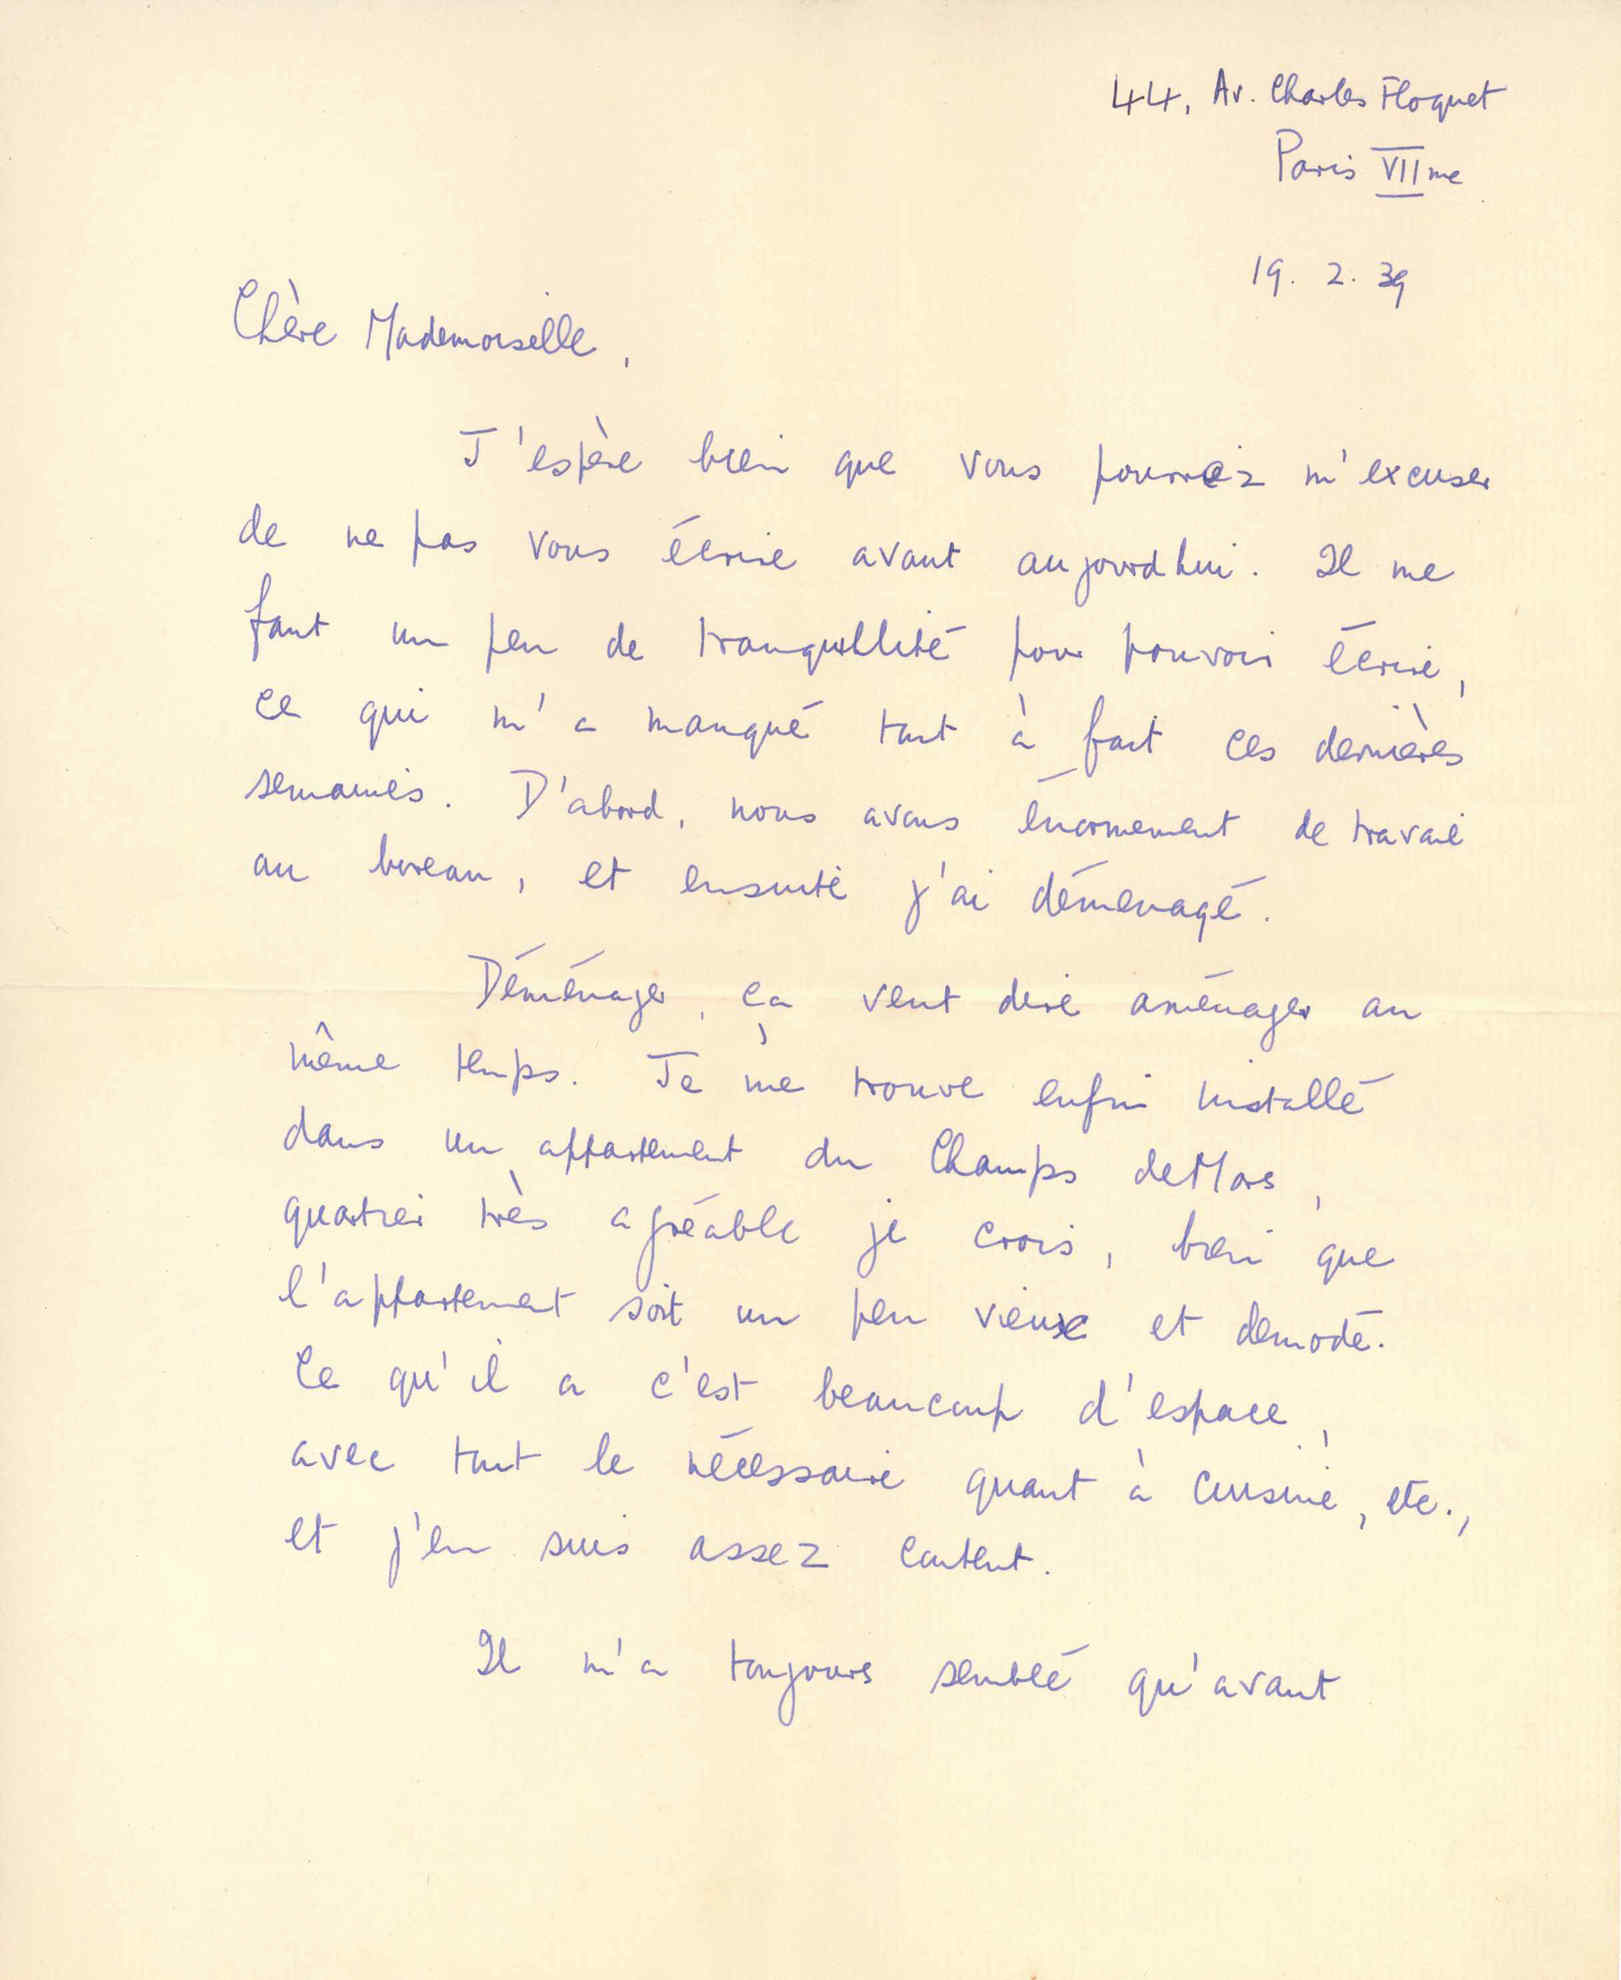 44, Av. Charles Floquet
Paris VIIme
19. 2. 39
Chère Mademoiselle,
J'espère bien que vous pourrez m'excuser
de ne pas vous écrire avant aujourdhui. Il me
faut un peu de tranquillité pour pouvoir écrire,
ce qui m'a manqué tout à fait ces dernières
semaines. D'abord, nous avons énormement de travail
au bureau, et ensuite j'ai déménagé.
Déménager, ça veut dire aménager au
même temps. Je me trouve enfin installé
dans un appartement du Champs de Mars,
quartier très agréable je crois, bien que
l'appartement soit un peu vieux et demodé.
Ce qu'il a c'est beaucoup d'espace,
avec tout le nécessaire quant à cuisine, etc.,
et j'en suis assez content.
Il m'a toujours semblé qu'avant